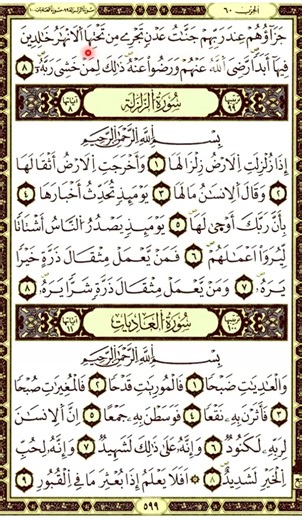 سورة البينة ٩٨ سورة العاديات ١٠٠
الجزء ٦٠
جَزَآؤُهُمْ عِندَ رَبِّهِمْ جَنَّٰتُ عَدْنٍ تَجْرِي مِن تَحْتِهَا الْأَنْهَٰرُ خَٰلِدِينَ
فِيهَآ أَبَدًا رَّضِيَ اللَّهُ عَنْهُمْ وَرَضُوا عَنْهُ ذَٰلِكَ لِمَنْ خَشِيَ رَبَّهُ ٨
ترتيبها ٩٩ سُورَةُ الزَّلْزَلَةِ آياتها ٨
بِسْمِ اللَّهِ الرَّحْمَٰنِ الرَّحِيمِ
إِذَا زُلْزِلَتِ الْأَرْضُ زِلْزَالَهَا ١ وَأَخْرَجَتِ الْأَرْضُ أَثْقَالَهَا
٢ وَقَالَ الْإِنسَٰنُ مَا لَهَا ٣ يَوْمَئِذٍ تُحَدِّثُ أَخْبَارَهَا ٤
بِأَنَّ رَبَّكَ أَوْحَىٰ لَهَا ٥ يَوْمَئِذٍ يَصْدُرُ النَّاسُ أَشْتَاتًا
لِّيُرَوْا أَعْمَٰلَهُمْ ٦ فَمَن يَعْمَلْ مِثْقَالَ ذَرَّةٍ خَيْرًا
يَرَهُ ٧ وَمَن يَعْمَلْ مِثْقَالَ ذَرَّةٍ شَرًّا يَرَهُ ٨
ترتيبها ١٠٠ سُورَةُ الْعَادِيَاتِ آياتها ١١
بِسْمِ اللَّهِ الرَّحْمَٰنِ الرَّحِيمِ
وَالْعَٰدِيَٰتِ ضَبْحًا ١ فَالْمُورِيَٰتِ قَدْحًا ٢ فَالْمُغِيرَٰتِ صُبْحًا
٣ فَأَثَرْنَ بِهِ نَقْعًا ٤ فَوَسَطْنَ بِهِ جَمْعًا ٥ إِنَّ الْإِنسَٰنَ
لِرَبِّهِ لَكَنُودٌ ٦ وَإِنَّهُ عَلَىٰ ذَٰلِكَ لَشَهِيدٌ ٧ وَإِنَّهُ لِحُبِّ
الْخَيْرِ لَشَدِيدٌ ٨ أَفَلَا يَعْلَمُ إِذَا بُعْثِرَ مَا فِي الْقُبُورِ ٩
٥٩٩